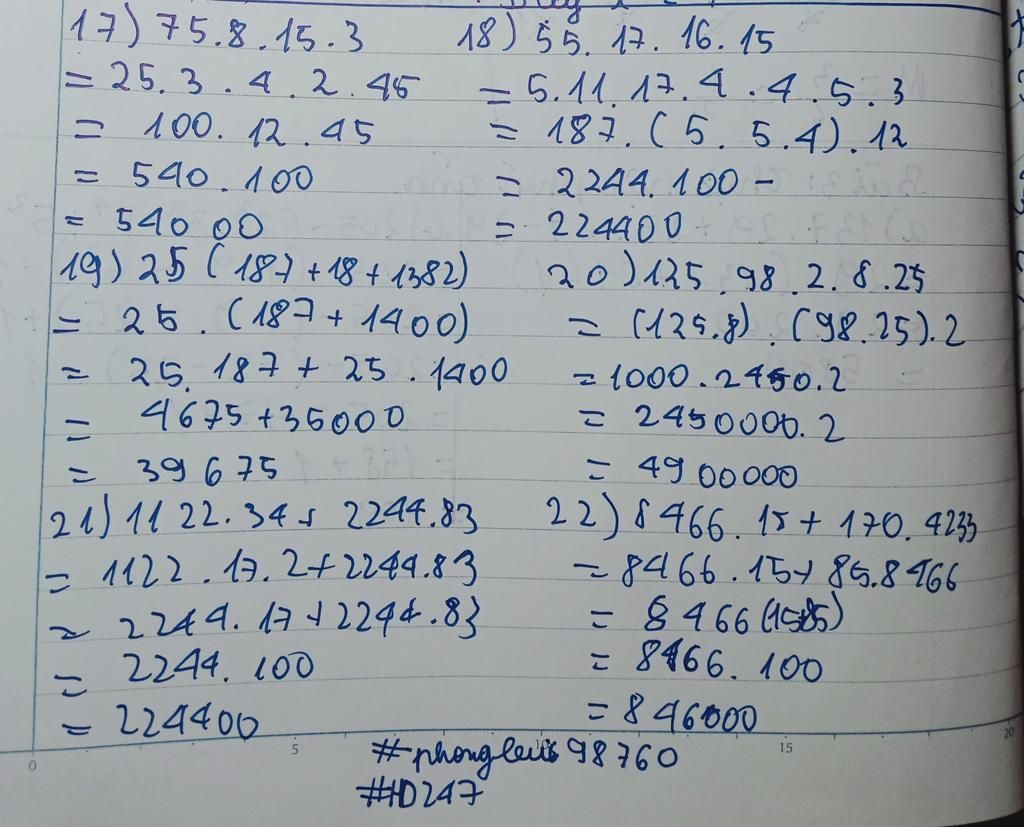 17) 75.8.15.3
= 25.3.4.2.45
= 100.12.45
= 540.100
= 54000
18) 55.17.16.15
= 5.11.17.4.4.5.3
= 187.(5.5.4).12
= 2244.100-
= 224400
19) 25(187+18+1382)
= 25.(187+1400)
= 25.187+25.1400
= 4675+35000
= 39675
20) 125.98.2.8.25
= (125.8).(98.25).2
= 1000.2450.2
= 2450000.2
= 4900000
21) 1122.34+2244.83
= 1122.17.2+2244.83
= 2244.17+2244.83
= 2244.100
= 224400
22) 8466.15+170.4233
= 8466.15+85.8466
= 8466(15+85)
= 8466.100
= 846000
98760
#HD247
0 5 15 20